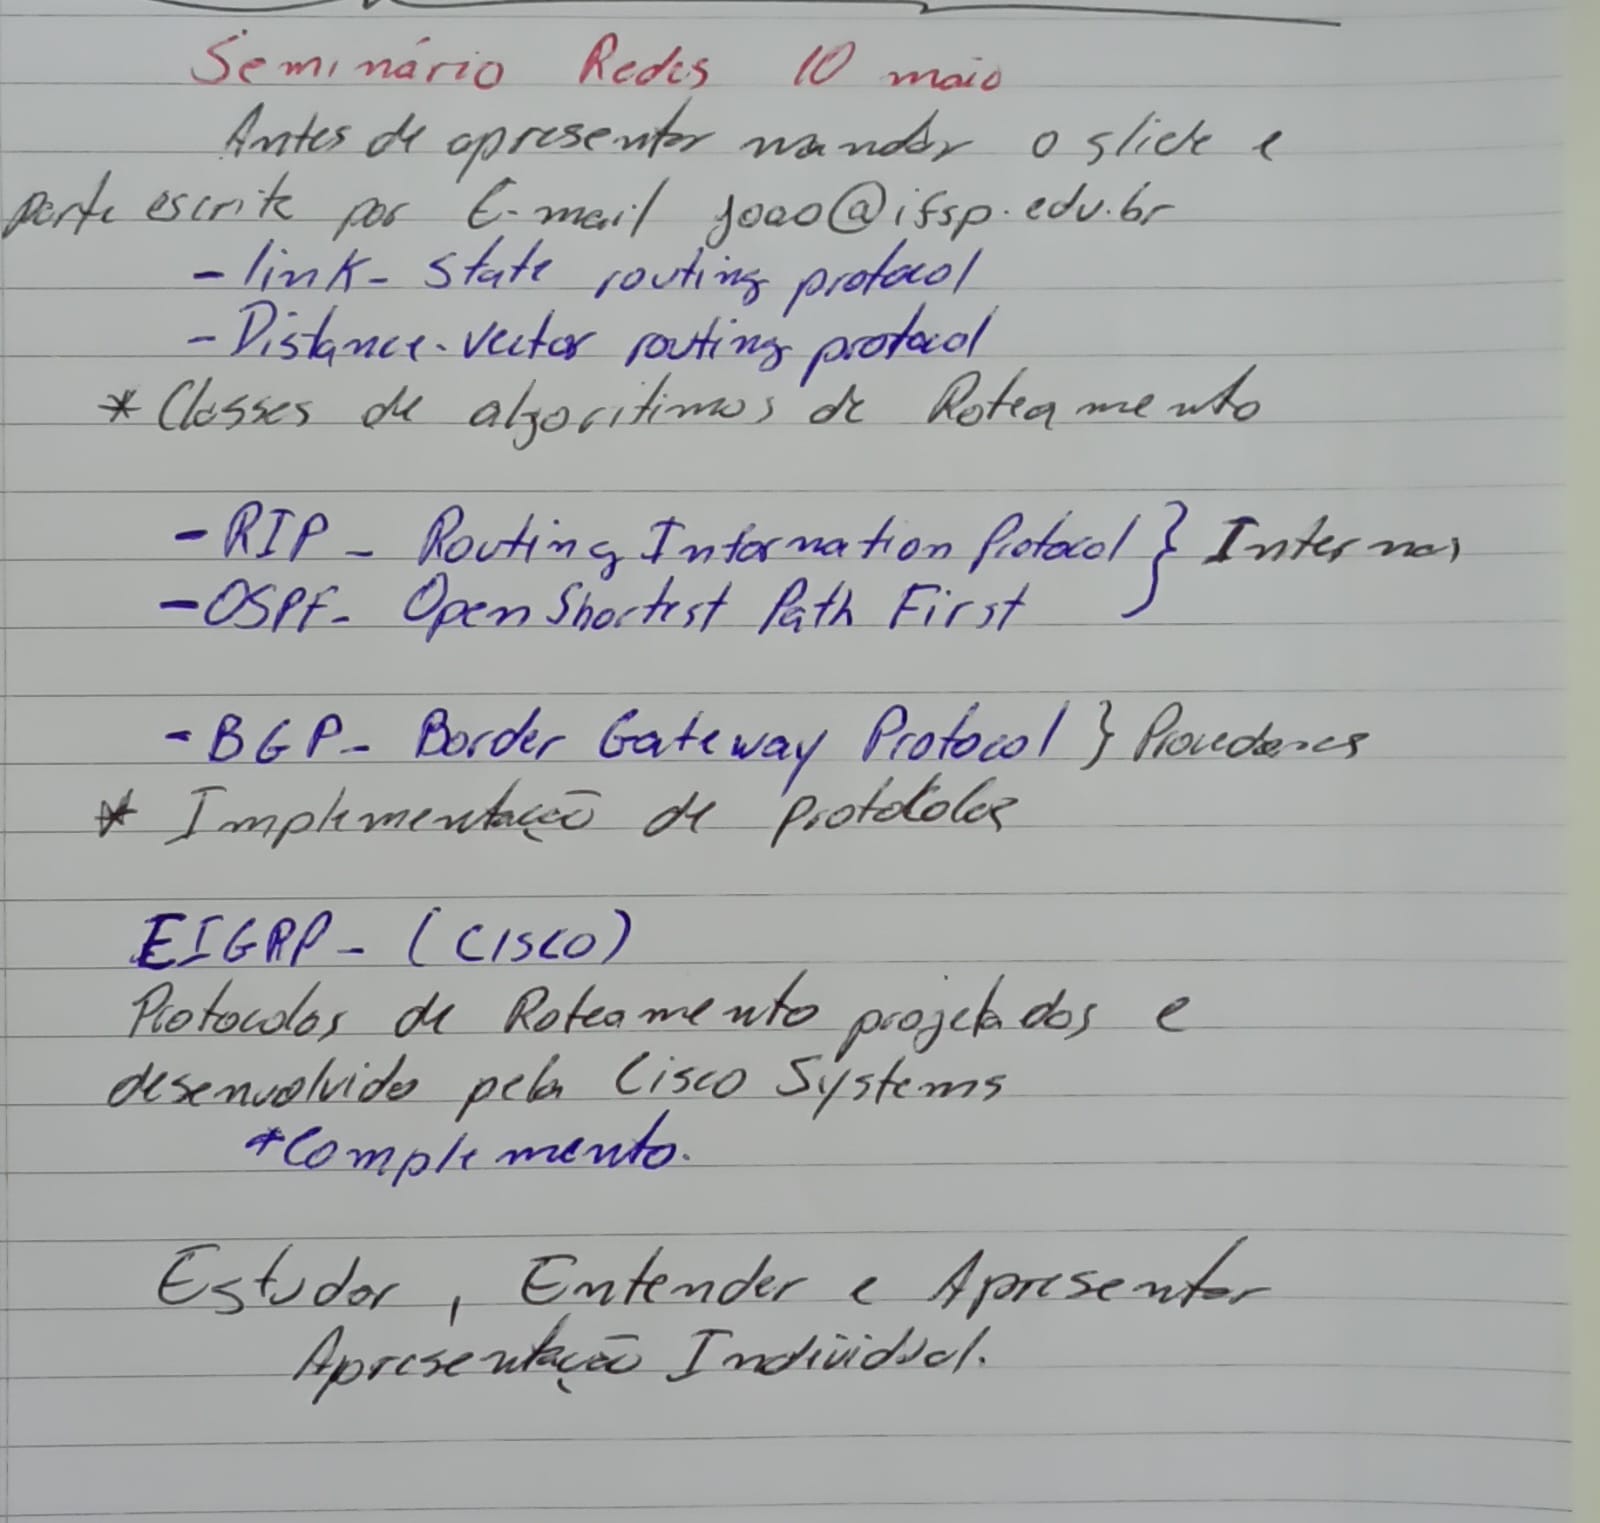 Seminário Redes 10 maio
Antes de apresentar mandar o slide e
parte escrita por E-mail joao@ifsp.edu.br
- link-state routing protocol
- Distance-vector routing protocol
* Classes de algoritimos de Roteamento
- RIP - Routing Information Protocol } Internos
- OSPF - Open Shortest Path First
- BGP - Border Gateway Protocol } Provedores
* Implementação de protokolos
EIGRP - (CISCO)
Protocolos de Roteamento projetados e
desenvolvido pela Cisco Systems
*Complemento.
Estudar, Entender e Apresentar
Apresentação Individual.